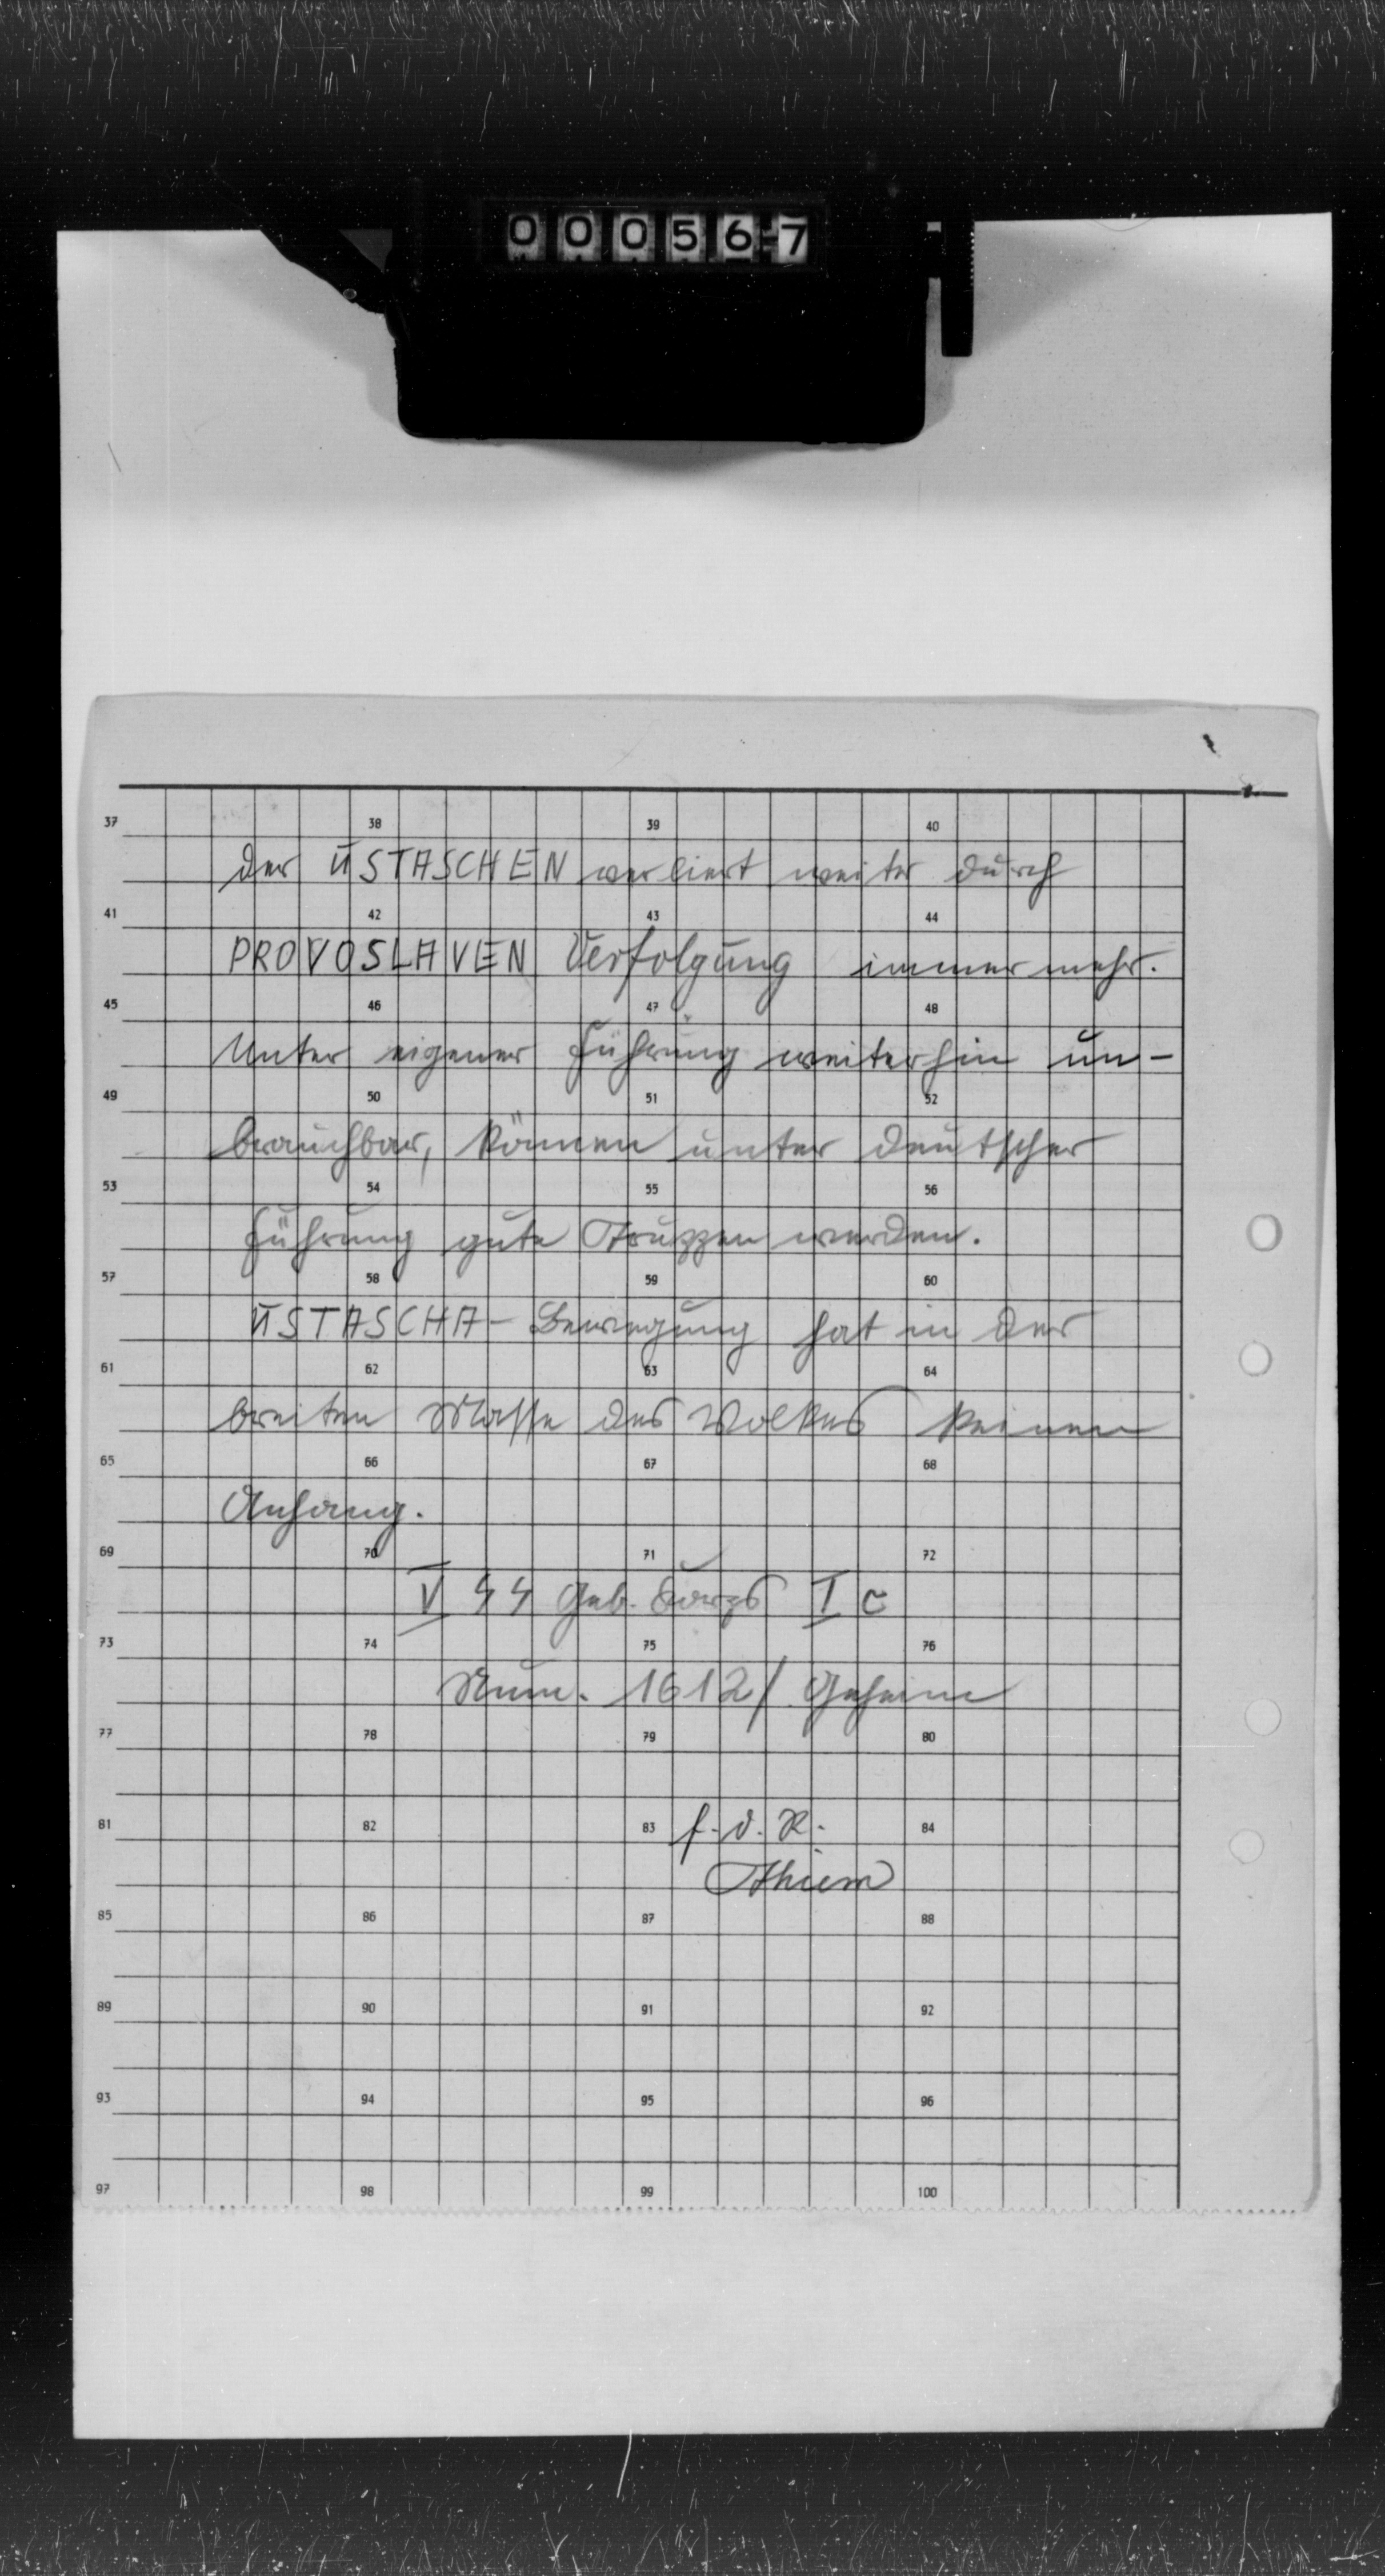 000567
37 38 39 40
der USTASCHEN verliert weiter durch
41 42 43 44
PROVOSLAVEN Verfolgung immer mehr.
45 46 47 48
Unter eigener Führung weiterhin un-
49 50 51 52
brauchbar, können unter deutscher
53 54 55 56
Führung gute Truppen werden.
57 58 59 60
USTASCHA- Bewegung hat in der
61 62 63 64
breiten Masse des Volkes keinen
65 66 67 68
Anhang.
69 70 71 72
V SS Geb. Korps I c
73 74 75 76
Num. 1612/ Geheim
77 78 79 80
81 82 83 f. d. R. 84
Thiem
85 86 87 88
89 90 91 92
93 94 95 96
97 98 99 100